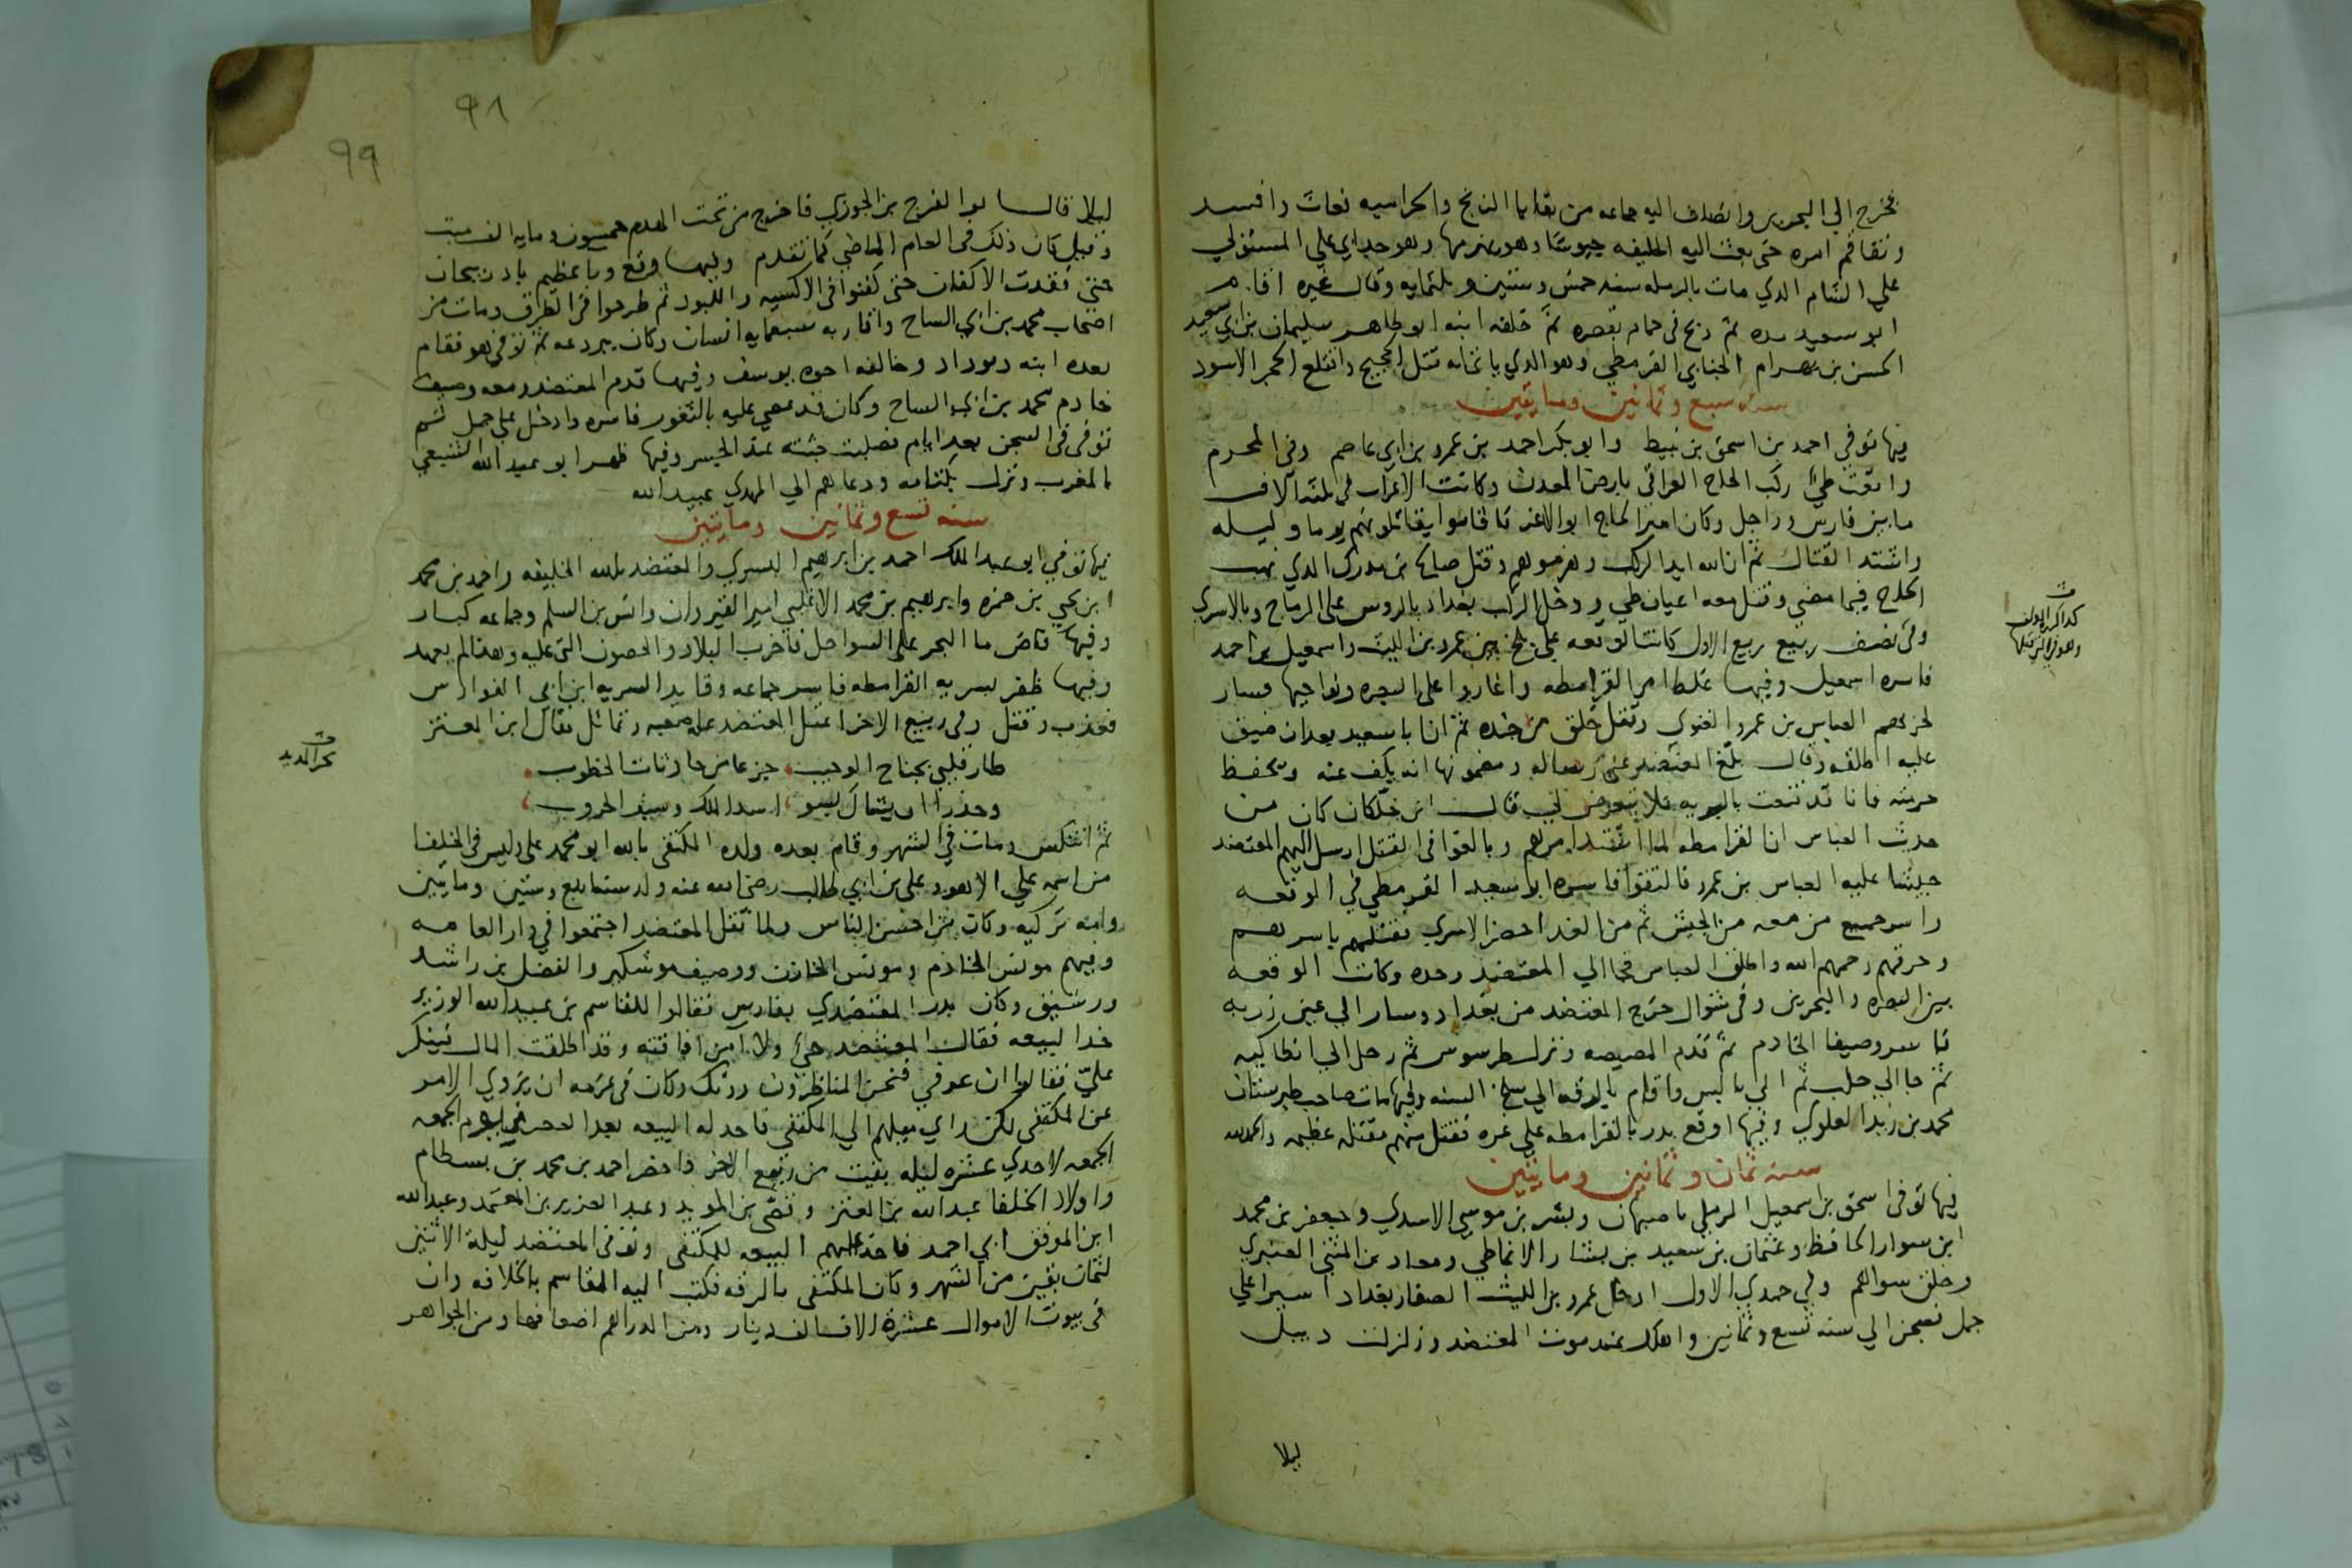 فخرج الي البحرين وانضاف اليه جماعه من بقايا الزنج والحراميه فعاث وافسد
وتفاقم امره حتى بعث اليه الخليفه جيوشا وهو يهزمها وهو جد ابي علي المستولي
علي الشام الذي مات بالرمله سنه خمس وستين وثلثمايه وقال غيره اقام
ابو سعيد مده ثم ذبح في حمام بقصره ثم خلفه ابنه ابو طاهر سليمان بن ابي سعيد
الحسن بن بهرام الجنابي القرمطي وهو الذي ياتي انه قتل الحجيج واقتلع الحجر الاسود
سنه سبع وثمانين ومايتين
فيها توفي احمد بن اسحق بن نبيط وابو بكر احمد بن عمرو بن ابي عاصم وفي المحرم
واقعت طي ركب الحاج العراقي بارض المعدن وكانت الاعراب في ثلثه آلاف
ما بين فارس وراجل وكان امير الحاج ابو الاغر فاقاموا يقاتلونهم يوما وليله
واشتد القتال ثم ان الله ايد الركب وهزموهم وقتل صالح بن مدرك الذي نهب
الحاج فيما مضى وقتل معه اعيان طي ودخل الركب بغداد بالروس على الرماح وبالاسري
وفي نصف ربيع ربيع الاول كانت الوقعه علي بلخ بين عمرو بن الليث واسمعيل بن احمد
فاسره اسمعيل وفيها غلظ امر القرامطه واغاروا على البصره ونواحيها فسار
لحربهم العباس بن عمرو الغنوي وقتل خلق من جنده ثم ان ابا سعيد بعد ان ضيق
عليه اطلقه وقال بلغ المعتضد عني رساله ومضمونها انه يكف عنه ويحفظ
حرمته فانا قد قنعت بالبريه فلا يتعرض لي قال ابن خلكان كان من
حديث العباس ان القرامطه لما اشتد امرهم وبالغوا في القتل ارسل اليهم المعتضد
جيشا عليه العباس بن عمرو فالتقوا فاسره ابو سعيد القرمطي في الوقعه
واسر جميع من معه من الجيش ثم من الغد احضر الاسري فقتلهم باسرهم
وحرقهم رحمهم الله واطلق العباس فجا الي المعتضد وحده وكانت الوقعه
بين البصره والبحرين وفي شوال خرج المعتضد من بغداد وسار الي عين زربه
فاسر وصيفا الخادم ثم قدم المصيصه ونزل طرسوس ثم رحل الي انطاكيه
ثم جا الي حلب ثم الي بالس واقام بالرقه الي سلخ السنه وفيها مات صاحب طبرستان
محمد بن زيد العلوي وفيها اوقع بدر بالقرامطه علي غره فقتل منهم مقتله عظيمه والحمد لله
سنه ثمان وثمانين ومايتين
فيها توفى اسحق بن اسمعيل الرملي باصبهان وبشر بن موسي الاسدي وجعفر بن محمد
ابن سوار الحافظ وعثمان بن سعيد بن بشار الانماطي ومعاد بن المثنى العنبري
وخلق سواهم وفي جمدي الاول ادخل عمرو بن الليث الصفار بغداد اسيرا علي
جمل فسجن الي سنه تسع وثمانين واهلك عند موت المعتضد وزلزلت دبيل
ليلا
ليلا قال ابو الفرج بن الجوزي فاخرج من تحت الهدم خمسون ومايه الف ميت
وقيل كان ذلك في العام الماضي كما تقدم وفيها وقع وبا عظيم باذربيجان
حتى فقدت الاكفان حتى كفنوا في الاكسيه واللبود ثم طرحوا في الطرق ومات من
اصحاب محمد بن ابي الساج واقاربه سبعمايه انسان وكان ببردعه ثم توفي هو فقام
بعده ابنه ديوداد وخالفه اخوه يوسف وفيها قدم المعتضد ومعه وصيف
خادم محمد بن ابي الساج وكان قد عصي عليه بالثغور فاسره وادخل على جمل ثم
توفى في السجن بعد ايام فصلبت جثته عند الجسر وفيها ظهر ابو عبد الله الشيعي
بالمغرب ونزل بكتامه ودعاهم الي المهدي عبيد الله
سنه تسع وثمانين ومايتين
فيها توفي ابو عبد الملك احمد بن ابرهيم البسري والمعتضد بالله الخليفه واحمد بن محمد
ابن يحيي بن حمزه وابرهيم بن محمد الاغلبي امير القيروان وانس بن السلم وجماعه كبار
وفيها فاض ما البحر على السواحل فاخرب البلاد والحصون التي عليه وهذا لم يعهد
وفيها ظفر بسريه القرامطه فاسر جماعه وقايد السريه ابن ابي الفوارس
فعذب وقتل وفي ربيع الاخر اعتل المعتضد عله صعبه وتماثل فقال ابن المعتز
طار قلبي بجناح الوجيب جزعا من حادثات الخطوب
وحذرا ان يشاك بسو اسد الملك وسيف الحروب
ثم انتكس ومات في الشهر وقام بعده ولده المكتفى بالله ابو محمد علي وليس في الخلفا
من اسمه علي الا هو وعلي بن ابي طالب رضي الله عنه ولد سنه اربع وستين ومايتين
وامه تركيه وكان من احسن الناس ولما ثقل المعتضد اجتمعوا في دار العامه
وفيهم مونس الخادم ومونس الخازن ووصيف موشكير والفضل بن راشد
ورشيق وكان بدر المعتضدي بفارس فقالوا للقاسم بن عبيد الله الوزير
خذ البيعه فقال المعتضد حي ولا آمن افاقته وقد اطلقت المال فينكر
علي فقالوا ان عوفي فنحن المناظرون دونك وكان في عزمه ان يزوي الامر
عن المكتفى لكن راي ميلهم الي المكتفي فاخذ له البيعه بعد العصر في يوم الجمعه
الجمعه لاحدي عشره ليله بقيت من ربيع الاخر واحضر احمد بن محمد بن بسطام
واولاد الخلفا عبد الله بن المعتز وقصي بن المويد وعبد العزيز بن المعتمد وعبد الله
ابن الموفق ابي احمد فاخذ عليهم البيعه للمكتفى وتوفى المعتضد ليلة الاثنين
لثمان بقين من الشهر وكان المكتفى بالرقه فكتب اليه القاسم بالخلافه وان
في بيوت الاموال عشرة الاف الف دينار ومن الدراهم اضعافها ومن الجواهر
٩٨
٩٩